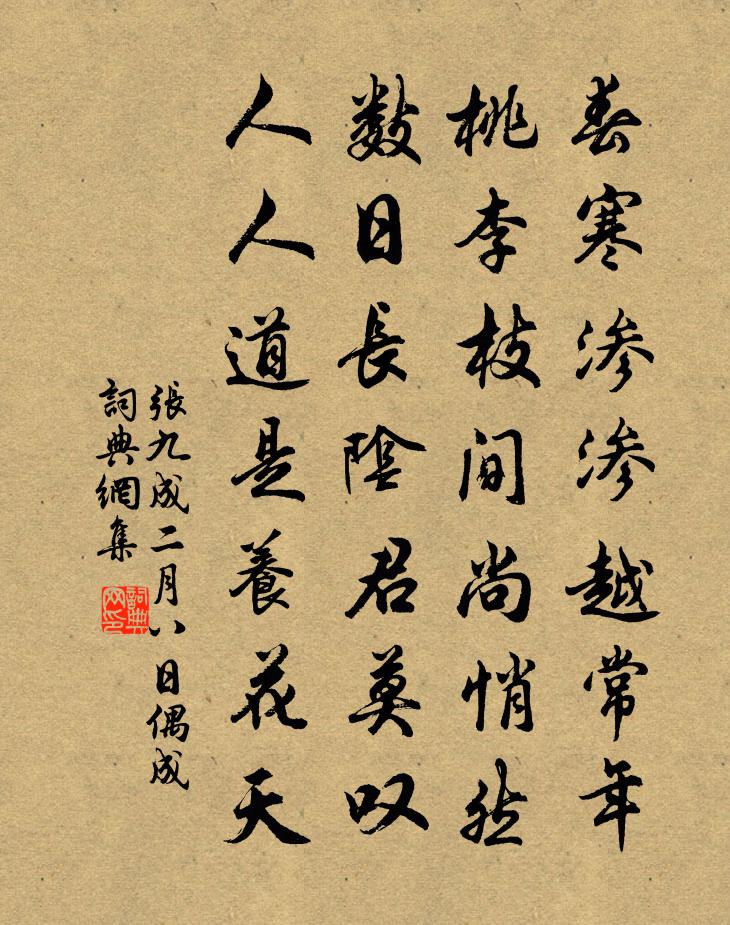 春寒渗渗越常年
桃李枝间尚悄然
数日長陰君莫叹
人人道是養花天
張九成二月八日偶成
詞典網集
詞典网印